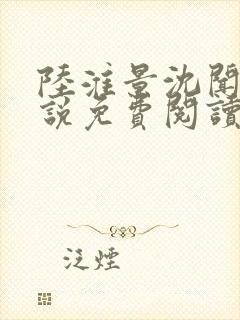 陸淮景沈聞
說免費閱讀
泛煙